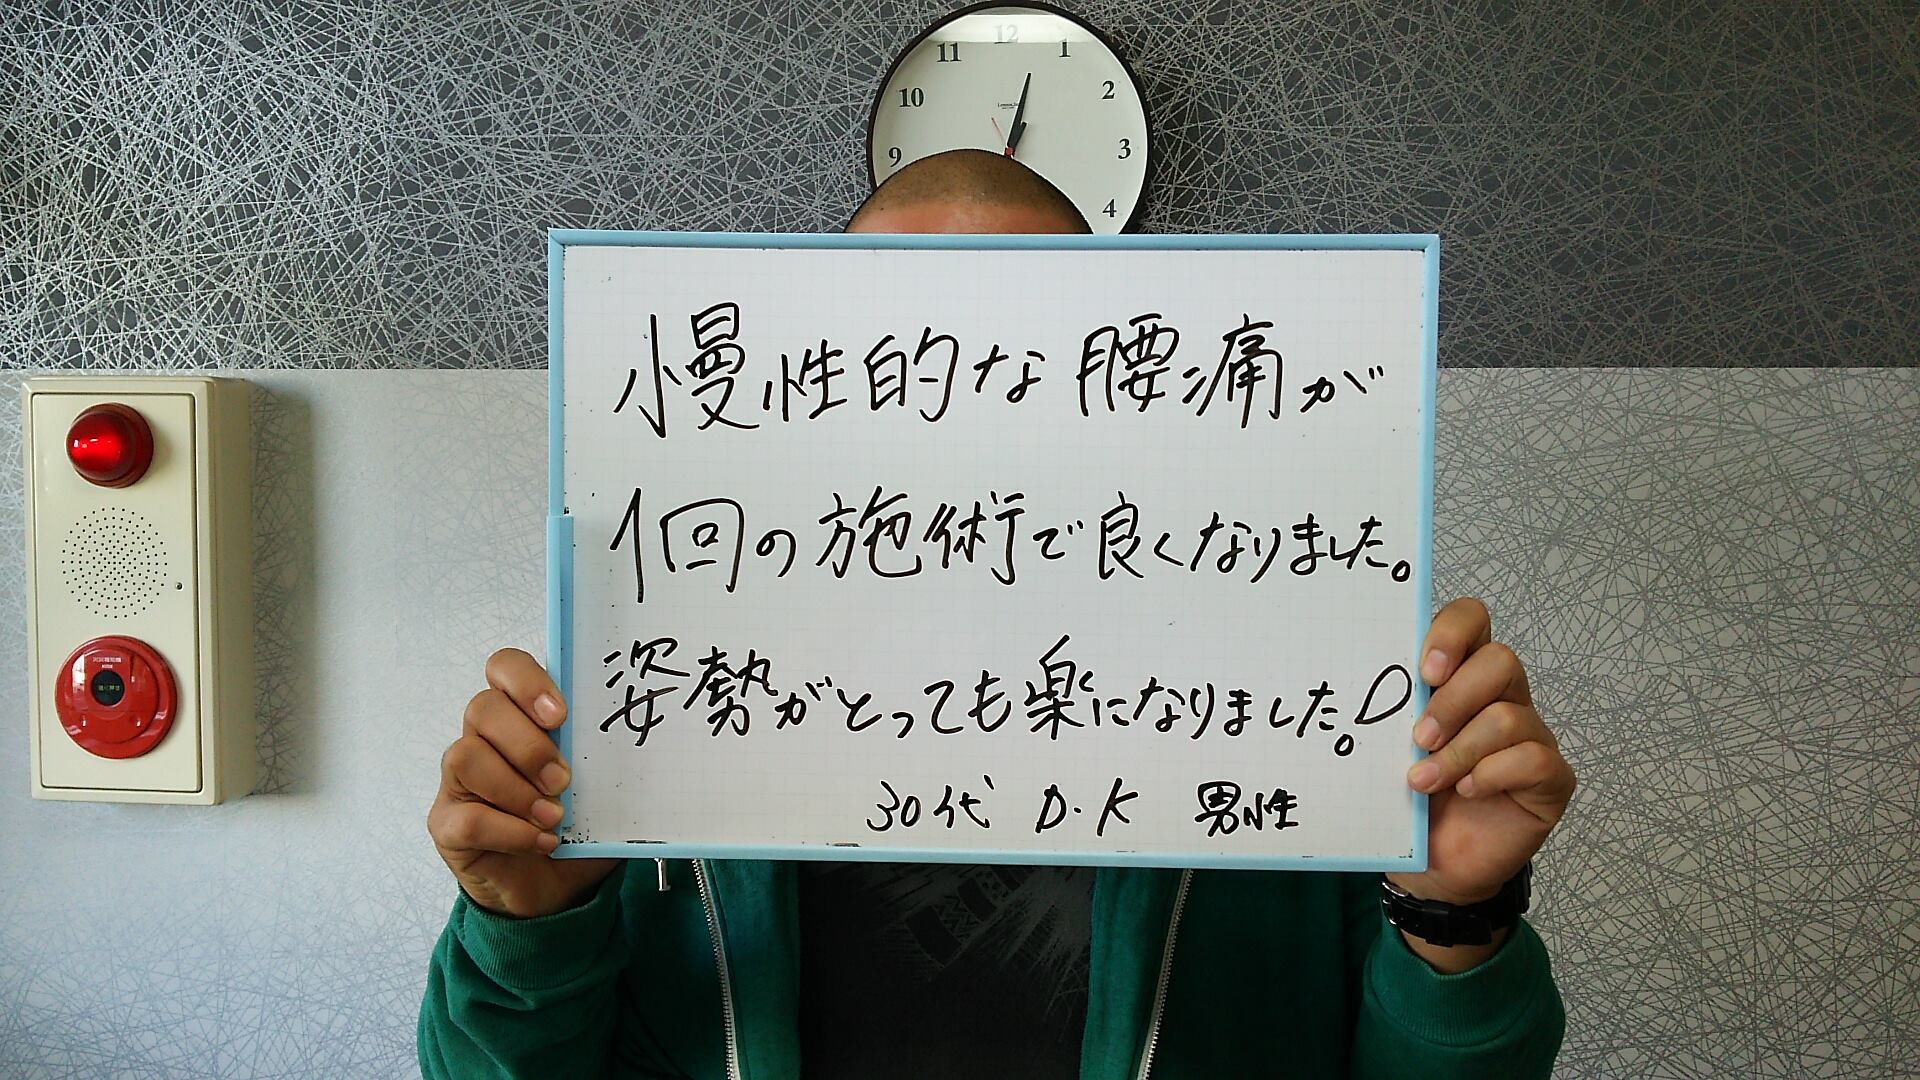 12
11 1
10 2
9 3
4
慢性的な腰痛が
1回の施術で良くなりました。
姿勢がとっても楽になりました!
30代 D・K 男性